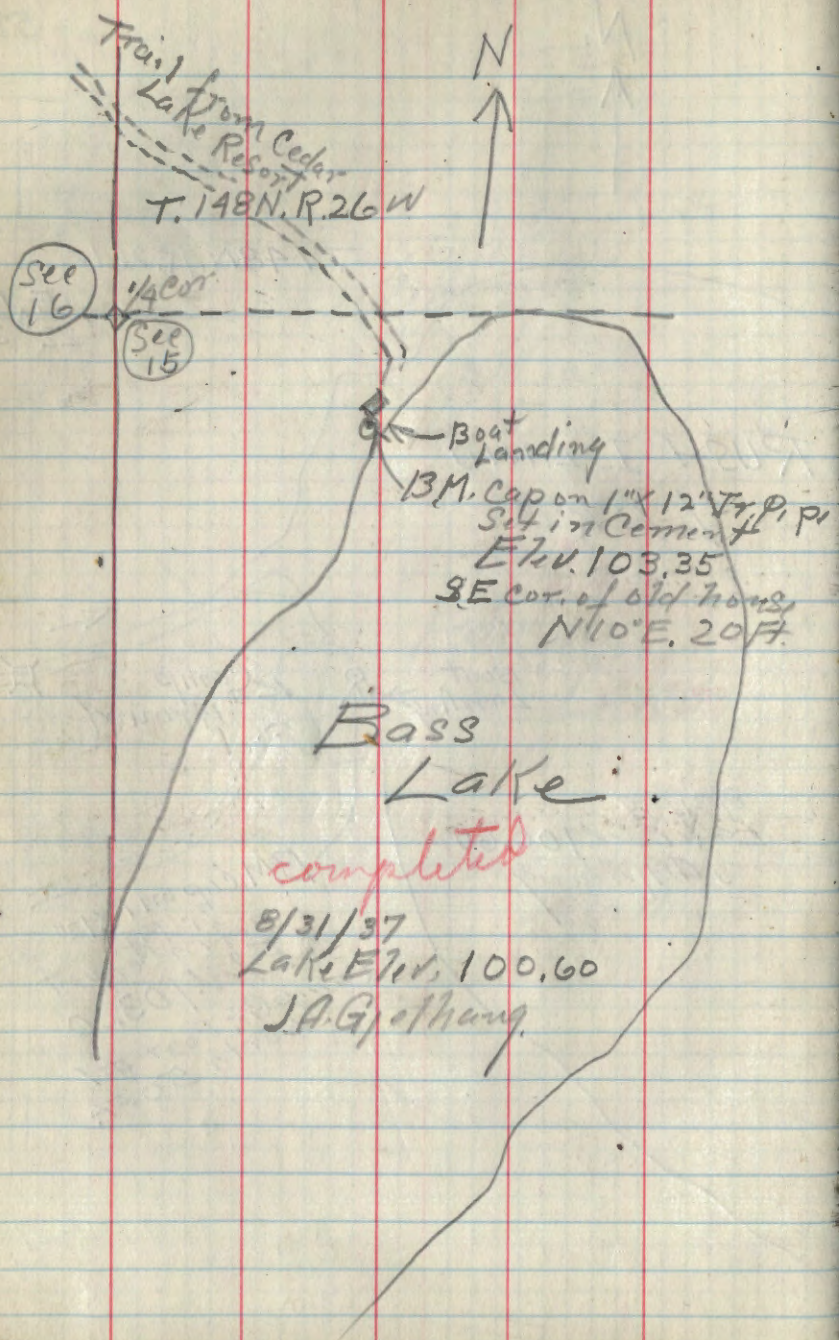 N
Trail from Cedar
Lake Resort
T. 148N. R. 26 W
Sec
16
1/4 cor
Sec
15
Boat
Landing
B.M. Cap on 1" X 12"
Set in Cement
Elev. 103.35
SE cor. of old house
N 10° E. 20 Ft.
Bass
Lake
completed
8/31/37
Lake Elev. 100.60
J.A. Gjelhaug